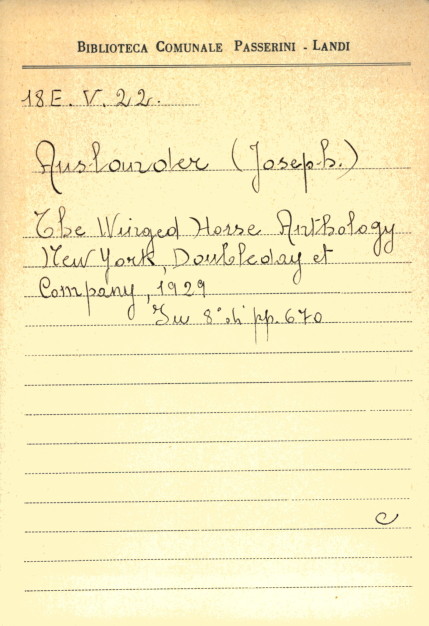 BIBLIOTECA COMUNALE PASSERINI - LANDI
18E. V. 22.
Auslander (Joseph.)
The Winged Horse Anthology
New York, Doubleday et
Company, 1929
In 8° di pp. 670
c